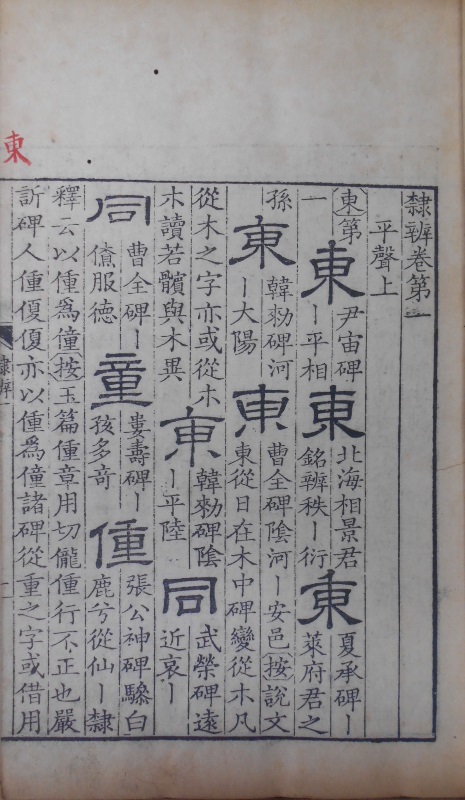 東
隸辨卷第一
平聲上
東第一 東 尹宙碑｜平相 東 北海相景君銘辨秩｜衍 東 夏承碑｜萊府君之
孫 東 韓勑碑河｜大陽 東 曹全碑陰河｜安邑按說文東從日在木中碑變從朩凡
從木之字亦或從朩朩讀若髕與木異 東 韓勑碑陰｜平陸 同 武榮碑遠近哀｜
同 曹全碑｜僚服德 童 婁壽碑｜孩多奇 偅 張公神碑驂白鹿兮從仙｜隸
釋云以偅爲僮按玉篇偅章用切儱偅行不正也嚴
訢碑人偅亦以偅爲僮諸碑從重之字或借用
隸辨一